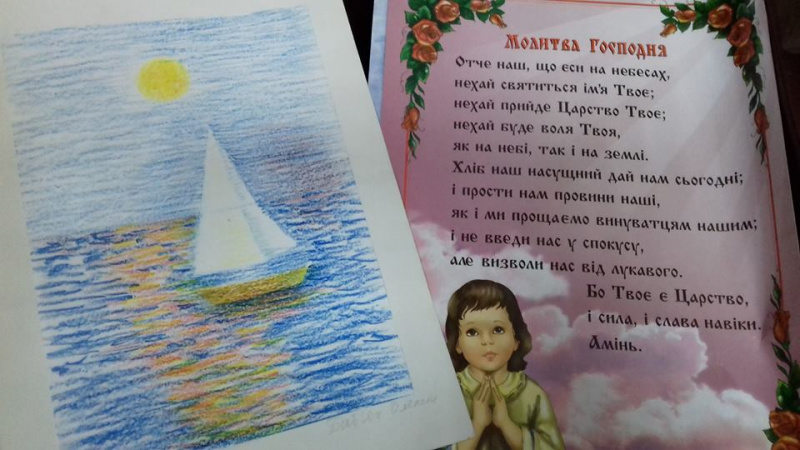 Молитва Господня
Отче наш, що єси на небесах,
нехай святиться ім'я Твоє;
нехай прийде Царство Твоє;
нехай буде воля Твоя,
як на небі, так і на землі.
Хліб наш насущний дай нам сьогодні;
і прости нам провини наші,
як і ми прощаємо винуватцям нашим;
і не введи нас у спокусу,
але визволи нас від лукавого.
Бо Твоє є Царство,
і сила, і слава навіки.
Амінь.